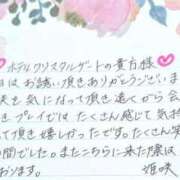 ホテルクリスタルゲートの貴方様
日はお誘い頂きありがとうございま
天を気になって頂き遠くから会
プレイではたくさん感じて気持
って頂き嬉しかったです。たくさん笑
間でした。またこちらに来た際は
おります。 姫咲